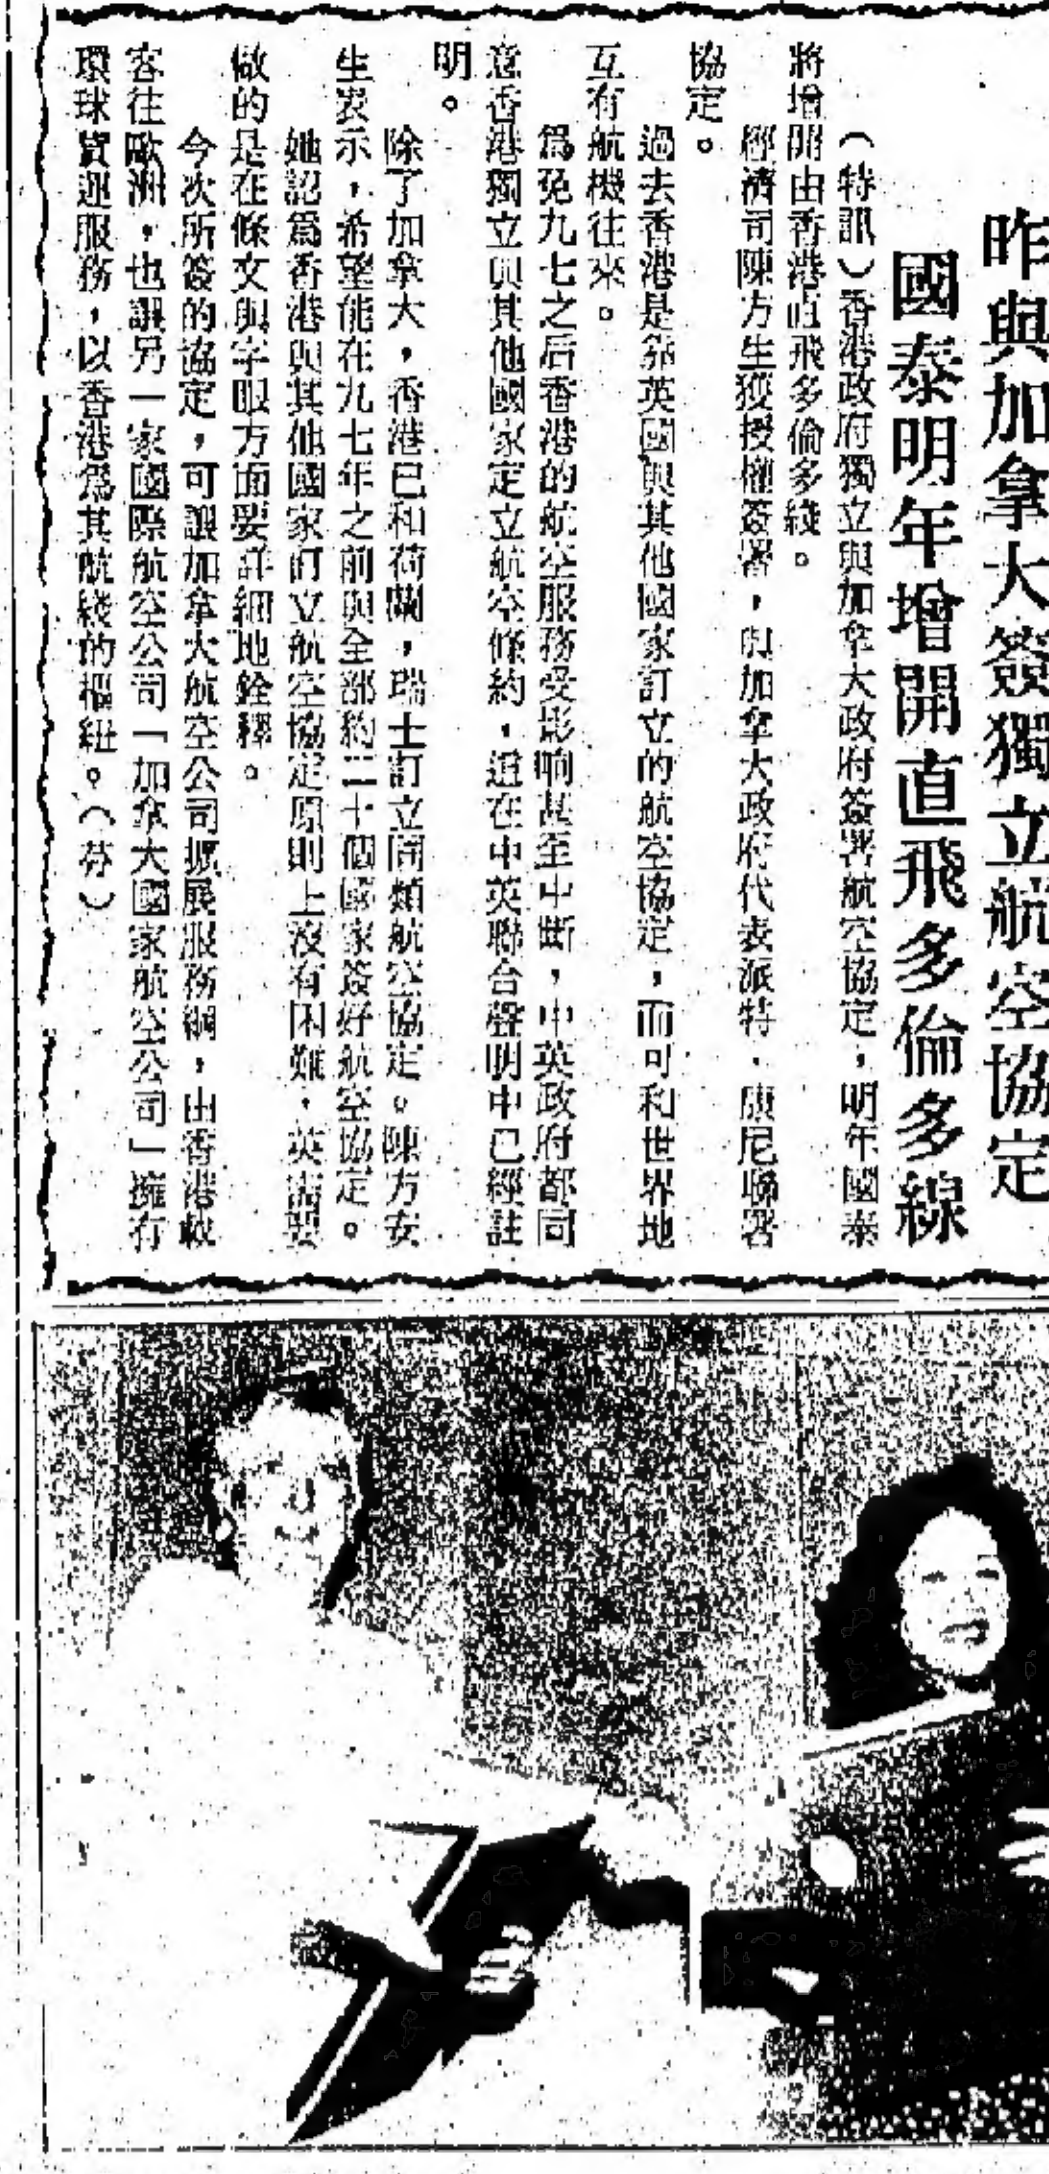 昨與加拿大簽獨立航空協定
國泰明年增開直飛多倫多線
（特訊）香港政府獨立與加拿大政府簽署航空協定，明年國泰
將增開由香港直飛多倫多綫。
經濟司陳方生獲授權簽署，與加拿大政府代表派特．康尼聯署
協定。
過去香港是靠英國與其他國家訂立的航空協定，而可和世界地
互有航機往來。
爲免九七之后香港的航空服務受影响甚至中斷，中英政府都同
意香港獨立與其他國家定立航空條約，這在中英聯合聲明中已經註
明。
除了加拿大，香港已和荷蘭，瑞士訂立同類航空協定。陳方安
生表示，希望能在九七年之前與全部約二十個國家簽好航空協定。
她認爲香港與其他國家訂立航空協定原則上沒有困難，英諾要
做的是在條文與字眼方面要詳細地銓釋。
今次所簽的協定，可讓加拿大航空公司擴展服務網，由香港載
客往歐洲，也讓另一家國際航空公司「加拿大國家航空公司」擁有
環球貨運服務，以香港爲其航綫的樞紐。（芬）